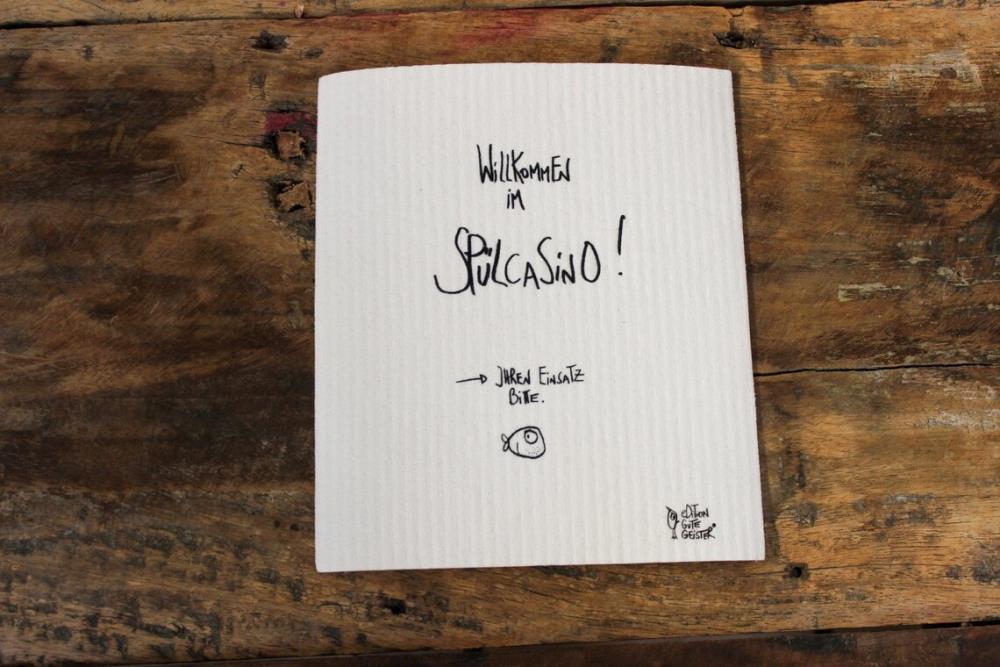 WiLLKOMMEN
iM
SPÜLCASiNO!
→ IHREN EiNSATZ
BiTTE.
EDiTiON
GUTE
GEiSTER®